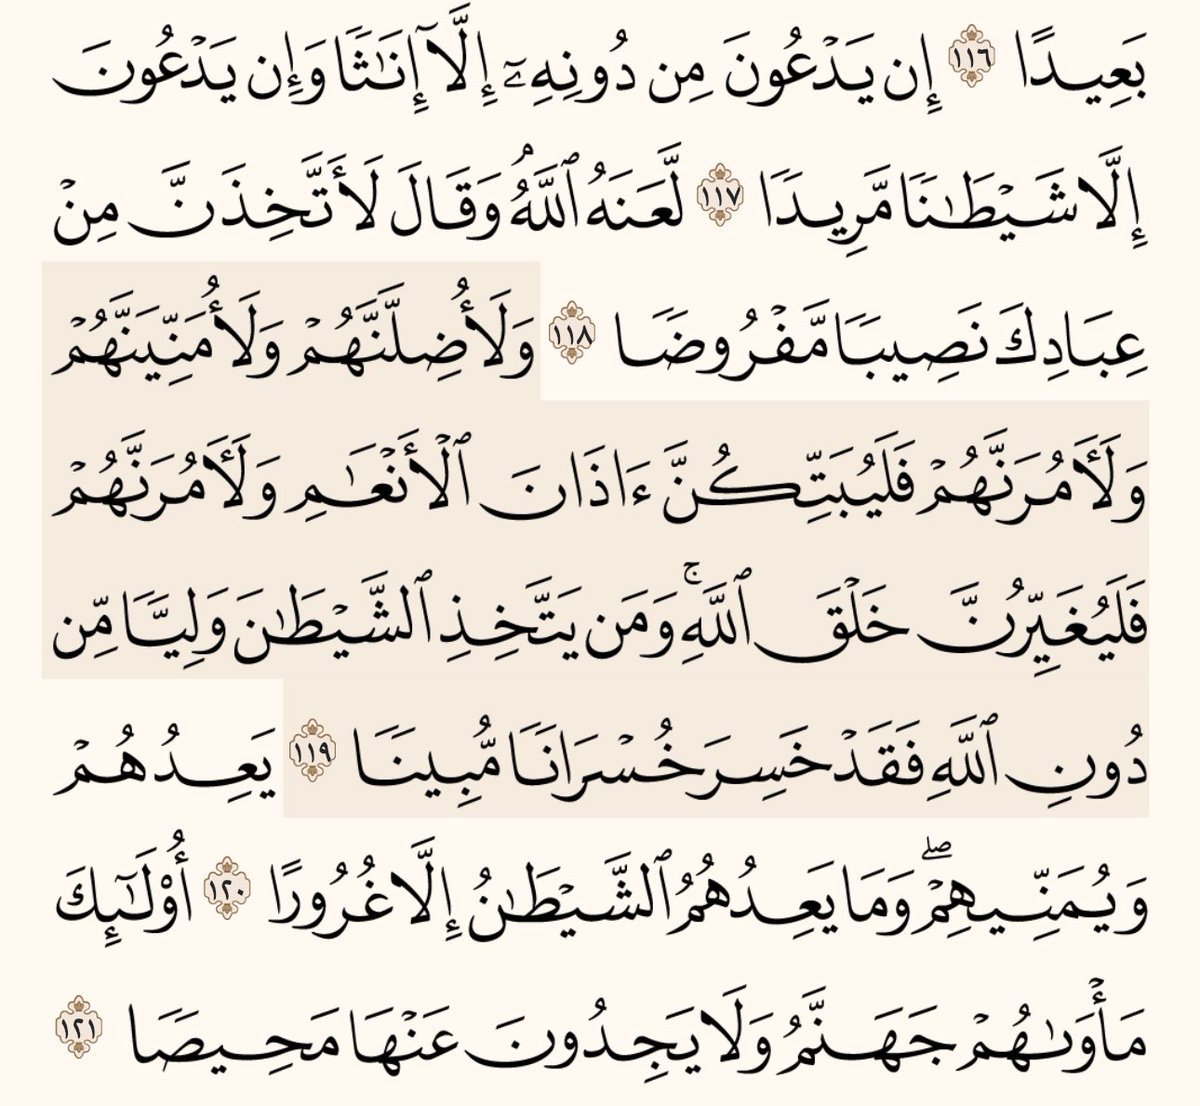 بَعِيدًا ١١٦ إِن يَدْعُونَ مِن دُونِهِۦٓ إِلَّآ إِنَٰثًا وَإِن يَدْعُونَ
إِلَّا شَيْطَٰنًا مَّرِيدًا ١١٧ لَّعَنَهُ ٱللَّهُۘ وَقَالَ لَأَتَّخِذَنَّ مِنْ
عِبَادِكَ نَصِيبًا مَّفْرُوضًا ١١٨ وَلَأُضِلَّنَّهُمْ وَلَأُمَنِّيَنَّهُمْ
وَلَءَامُرَنَّهُمْ فَلَيُبَتِّكُنَّ ءَاذَانَ ٱلْأَنْعَٰمِ وَلَءَامُرَنَّهُمْ
فَلَيُغَيِّرُنَّ خَلْقَ ٱللَّهِۚ وَمَن يَتَّخِذِ ٱلشَّيْطَٰنَ وَلِيًّا مِّن
دُونِ ٱللَّهِ فَقَدْ خَسِرَ خُسْرَانًا مُّبِينًا ١١٩ يَعِدُهُمْ
وَيُمَنِّيهِمْۖ وَمَا يَعِدُهُمُ ٱلشَّيْطَٰنُ إِلَّا غُرُورًا ١٢٠ أُو۟لَٰٓئِكَ
مَأْوَىٰهُمْ جَهَنَّمُ وَلَا يَجِدُونَ عَنْهَا مَحِيصًا ١٢١